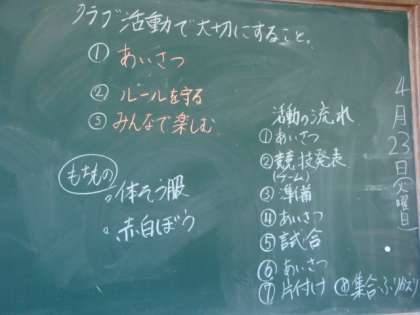 クラブ活動で大切にすること。
① あいさつ
② ルールを守る
③ みんなで楽しむ
もちもの
。体そう服
。赤白ぼう
活動の流れ
①あいさつ
②競技発表
(ゲーム)
③準備
④あいさつ
⑤試合
⑥あいさつ
⑦片付け ⑧集合、ふりかえり
4月23日(火曜日)